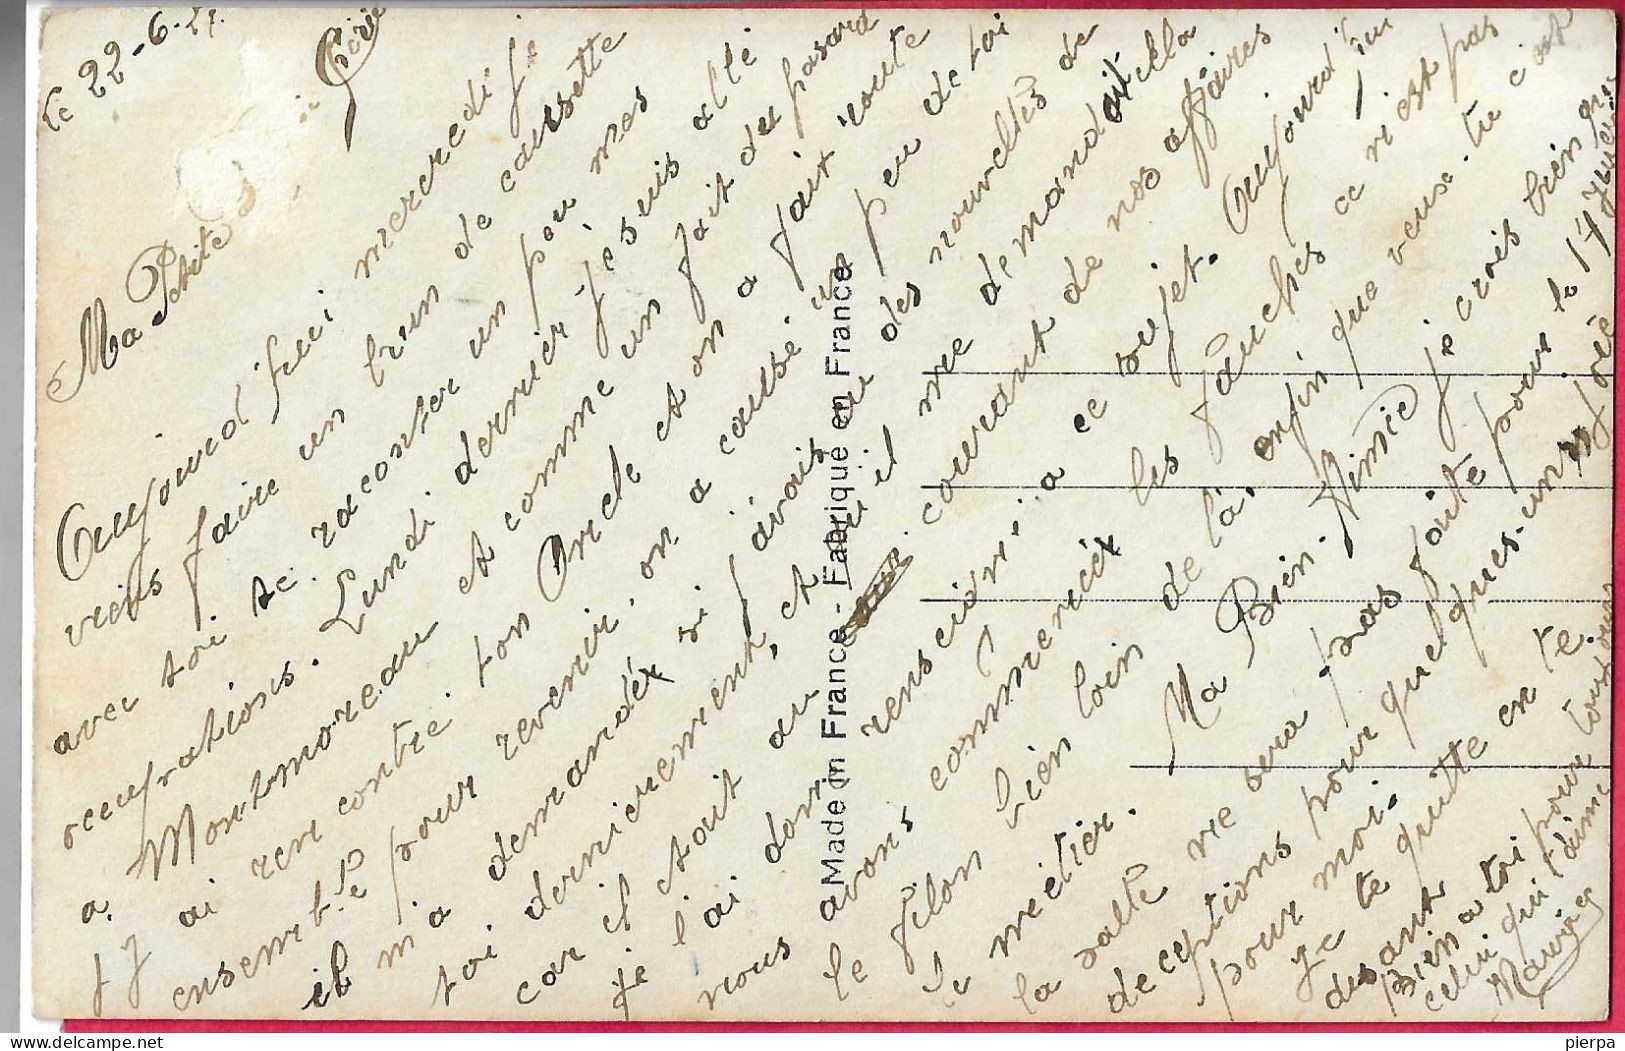 le 22-6-
Ma Petite Chérie
Aujourd'hui mercredi je
viens faire un brun de causette
avec toi te raconter un peu mes
occupations. Lundi dernier je suis allé
a. Montmoreau et comme un fait du hasard
j'ai rencontre ton Oncle et on a fait route
ensemble pour revenir, on a causé un peu de toi
il m'a demandé si j'avais eu des nouvelles de
toi dernierement, et qu'il me demandait cella
car il etait au courant de nos affaires
je l'ai donc renseigni a ce sujet. Aujourd'hui
nous avons commencé les fauches ce n'est pas
le filon bien loin de la, enfin que veux-tu c'est
le métier. Ma Bien Aimée je crois bien que
la salle ne sera pas faite pour le 17 Juillet
deceptions pour quelques-uns
pour moi.
Je te quitte en te
disant
Bien a toi pour toujours
celui qui t'aime
Maurice
Made in France - Fabrique en France
pierpa